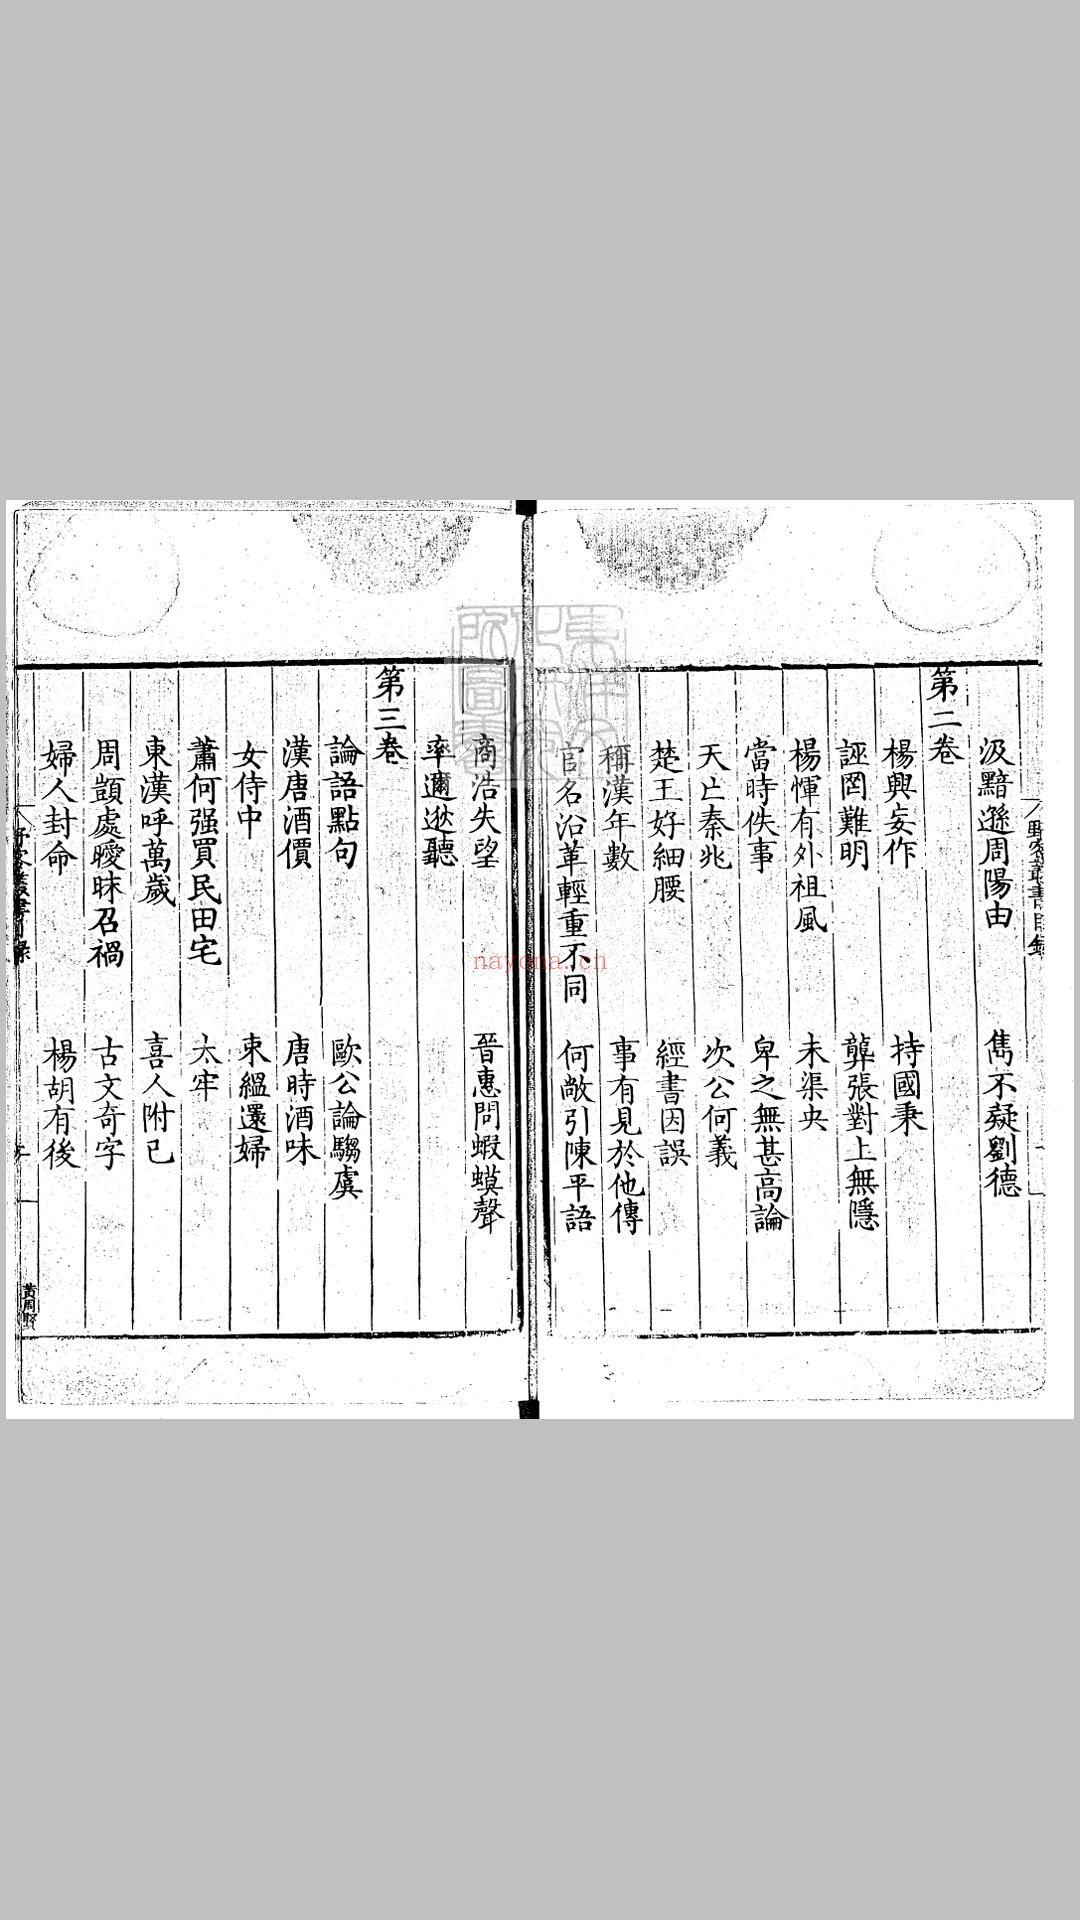 野客叢書目錄
汲黯遜周陽由 雋不疑劉德
第二卷
楊興妄作 持國秉
誣罔難明 龏張對上無隱
楊惲有外祖風 未渠央
當時佚事 卑之無甚高論
天亡秦兆 次公何義
楚王好細腰 經書因誤
稱漢年數 事有見於他傳
官名沿革輕重不同 何敞引陳平語
商浩失望 晉惠問蝦蟆聲
率邇逖聽
第三卷
論語點句 歐公論騶虞
漢唐酒價 唐時酒味
女侍中 束縕還婦
蕭何强買民田宅 太牢
東漢呼萬歲 喜人附己
周顗處曖昧召禍 古文奇字
婦人封命 楊胡有後
野客叢書目錄
黃周賢
nayona.cn